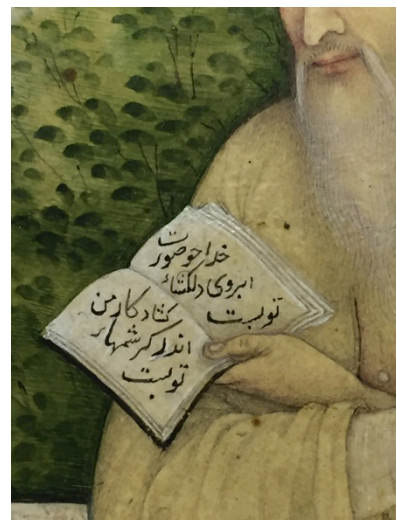 خدا چو صورت
ابروی دلکشای
تو بست
کشاد کار من
اندر کرشمهای
تو بست